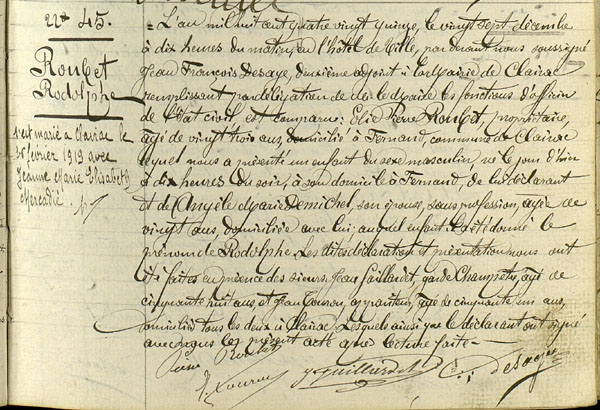 N° 45.
Roubet
Rodolphe
s'est marié à Clairac le
février 1919 avec
Jeanne Marie Elisabeth
Mercadié
L'an mil huit cent quatre vingt quinze, le vingt sept décembre
à dix heures du matin, en l'hôtel de Ville, par devant nous soussigné
Jean François Desaye, deuxième adjoint à la Mairie de Clairac
remplissant par délégation de de le Maire les fonctions d'officier
de l'Etat civil est comparu : Elie Pierre Roubet, propriétaire,
âgé de vingt trois ans, domicilié à Fernand, commune de Clairac
lequel nous a présenté un enfant du sexe masculin, né le jour d'hier
à dix heures du soir, à son domicile à Fernand, de lui déclarant
et de Angèle Marie Demichel, son épouse, sans profession, âgée de
vingt ans, domiciliée avec lui, auquel enfant il a été donné le
prénom de Rodolphe. Les dites déclaration et présentation nous ont
été faites en présence des sieurs Jean Gaillardet, garde Champêtre, âgé de
cinquante huit ans et Jean Touron, appariteur, âgé de cinquante un ans,
domiciliés tous les deux à Clairac, Lesquels ainsi que le déclarant ont signé
avec nous le présent acte après lecture faite.
Pierre Roubet
J. Touron Gaillardet Desaye